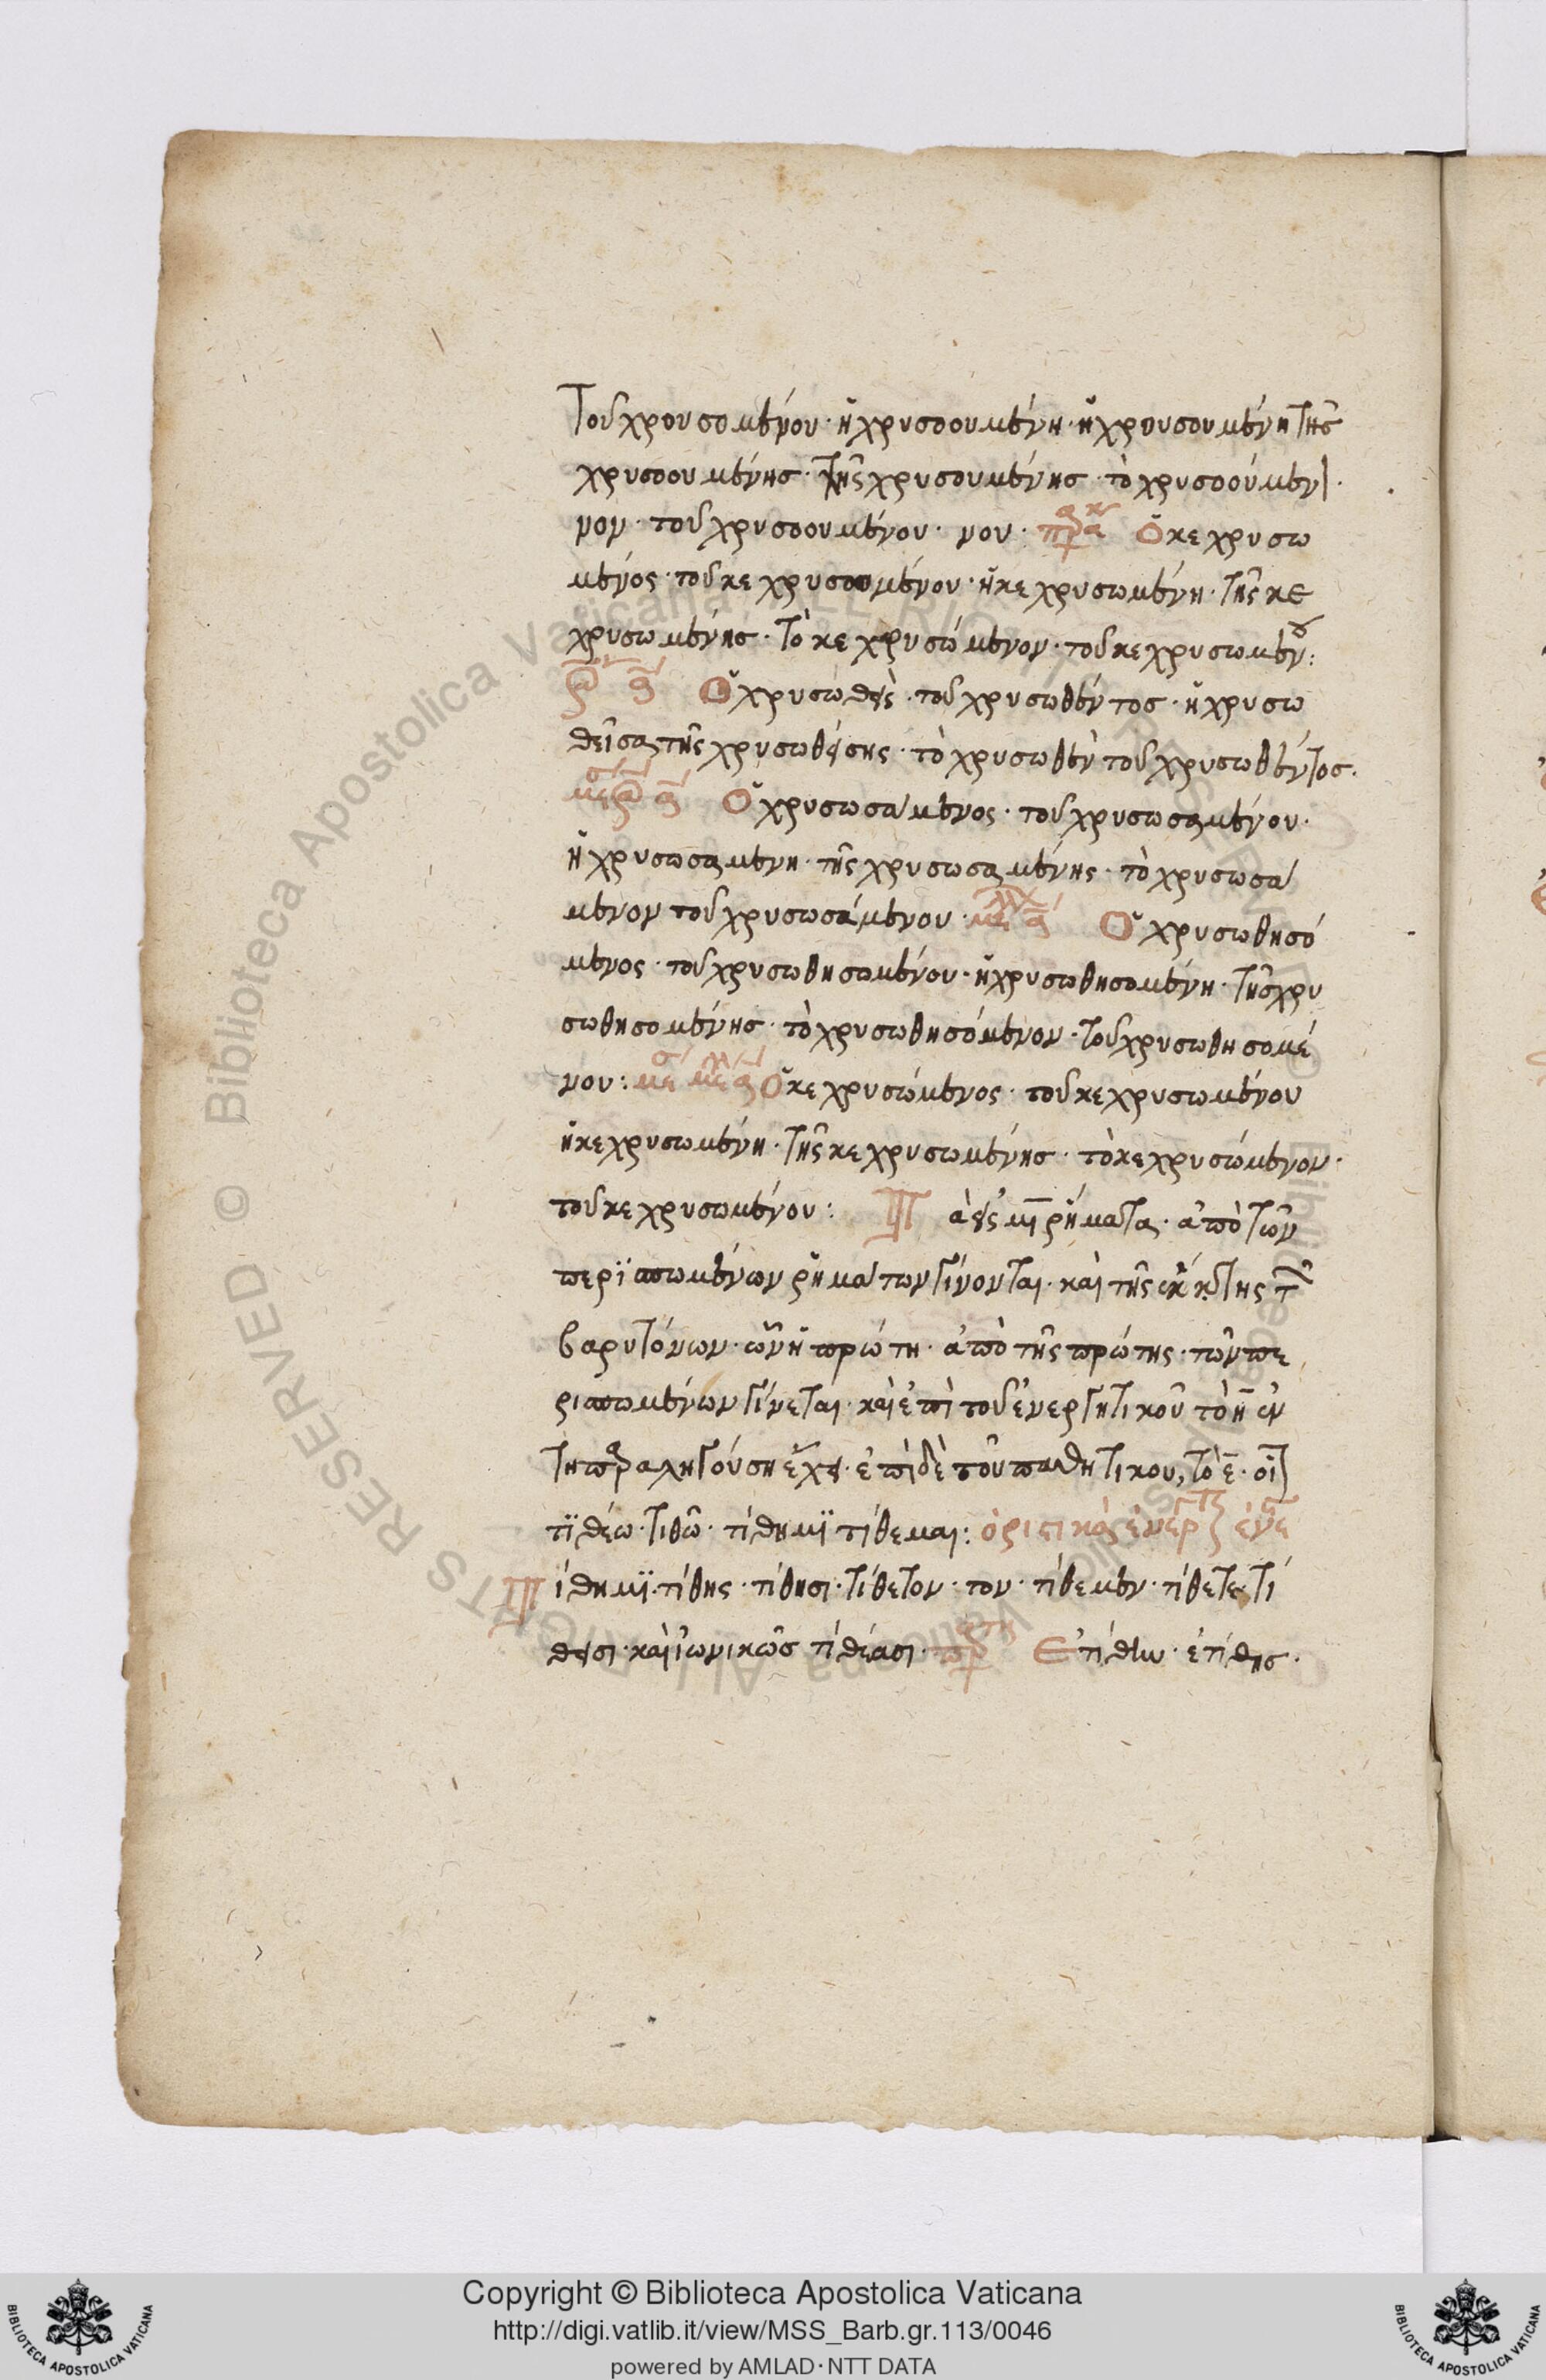 Τοῦ χρουσομένου · ἡ χρυσοουμένη · ἡ χρουσουμένη τῆς
χρυσοουμένης · τῆς χρυσουμένης · τὸ χρυσοούμεν
νον · τοῦ χρυσοουμένου · νου · Ὁ κεχρυσω
μένος · τοῦ κεχρυσωμένου · ἡ κεχρυσωμένη · τῆς κε
χρυσωμένης · Τὸ κεχρυσώμενον · τοῦ κεχρυσωμένου :
Ὁ χρυσωθεὶς · τοῦ χρυσωθέντος · ἡ χρυσω
θεῖσα τῆς χρυσωθείσης · τὸ χρυσωθὲν τοῦ χρυσωθέντος ·
Ὁ χρυσωσάμενος · τοῦ χρυσωσαμένου ·
ἡ χρυσωσαμενη · τῆς χρυσωσαμένης · τὸ χρυσωσά
μενον τοῦ χρυσωσάμενου · Ὁ χρυσωθησό
μενος · τοῦ χρυσωθησομένου · ἡ χρυσωθησομένη · τῆς χρυ
σωθησομένης · τὸ χρυσωθησόμενον · τοῦ χρυσωθησομέ
νου : Ὁ κεχρυσώμενος · τοῦ κεχρυσωμένου
ἡ κεχρυσωμένη · τῆς κεχρυσωμένης · τὸ κεχρυσώμενον ·
τοῦ κεχρυσωμένου : Τὰ εἰς μι ῥήματα · ἀπὸ τῶν
περϊσπωμένων ῥημάτων γίνονται · καὶ τῆς ἕκτης τῶν
βαρυτόνων · ὧν ἡ πρώτη · ἀπὸ τῆς πρώτης · τῶν πε
ρισπωμένων γίνεται · καὶ ἐπὶ τοῦ ἐνεργητικοῦ τὸ η ἐν
τη παραληγούση ἔχει · ἐπὶ δὲ τοῦ παθητικου, τὸ ε · οἷον
τϊθέω · τιθῶ · τίθημϊ τίθεμαι : ὁριστικὰ
Τίθημϊ · τίθης · τίθησι · τίθετον · τον · τίθεμεν · τίθετε · τί
θεισι · καὶ ἰωνικῶς τιθέασι · Ἐτίθην · ἐτίθης ·
Copyright © Biblioteca Apostolica Vaticana
http://digi.vatlib.it/view/MSS_Barb.gr.113/0046
powered by AMLAD · NTT DATA
BIBLIOTECA APOSTOLICA VATICANA
BIBLIOTECA APOSTOLICA VATICANA